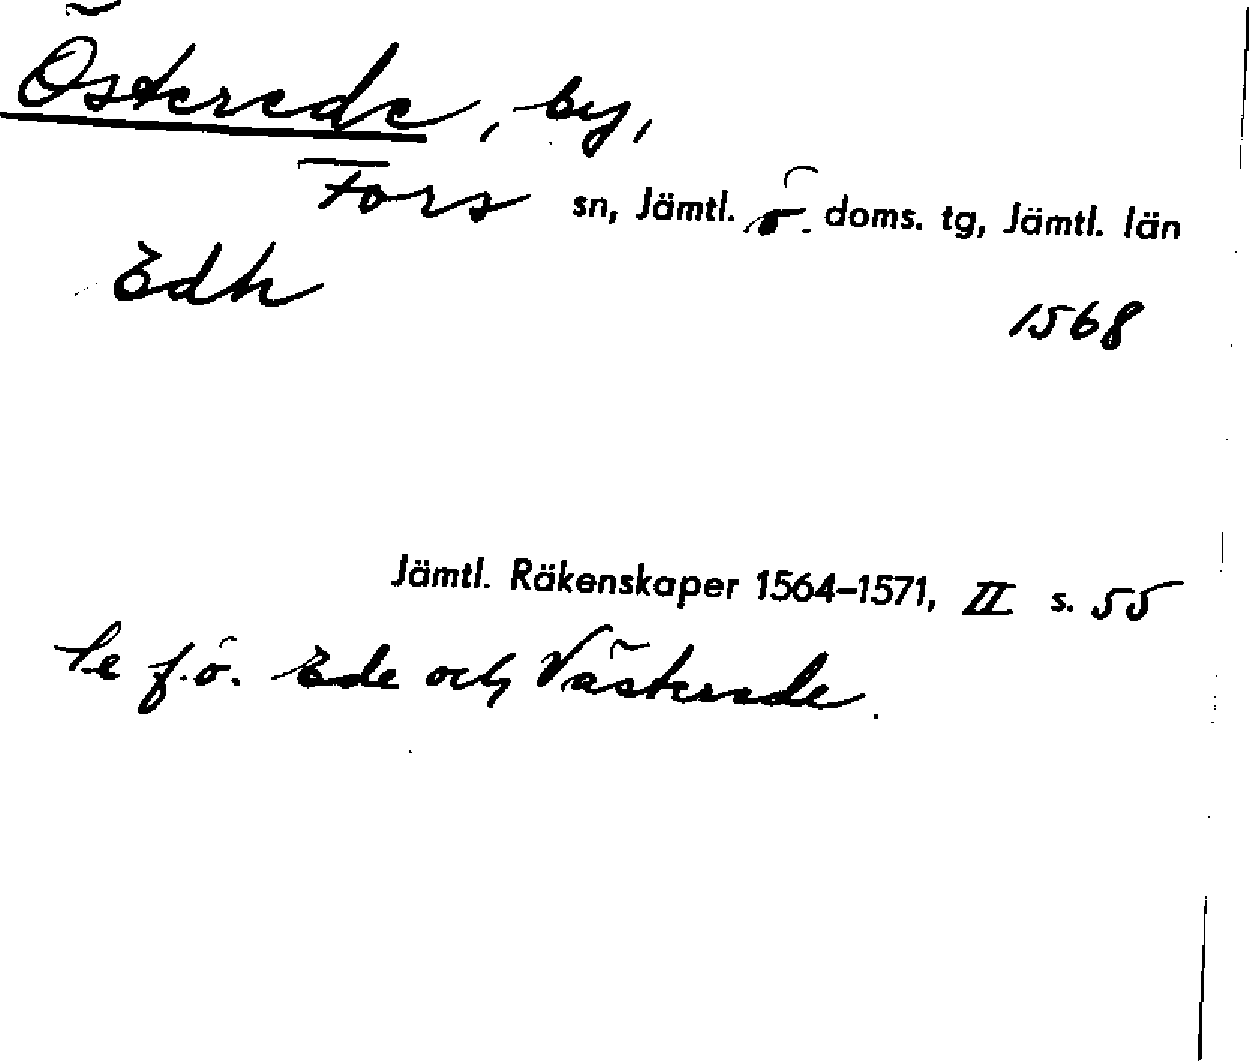 Österede, by,
Fors sn, Jämtl. ö. doms. tg, Jämtl. län
Edh
1568
Jämtl. Räkenskaper 1564–1571, II s. 55
Se f.ö. Ede och Västerede.